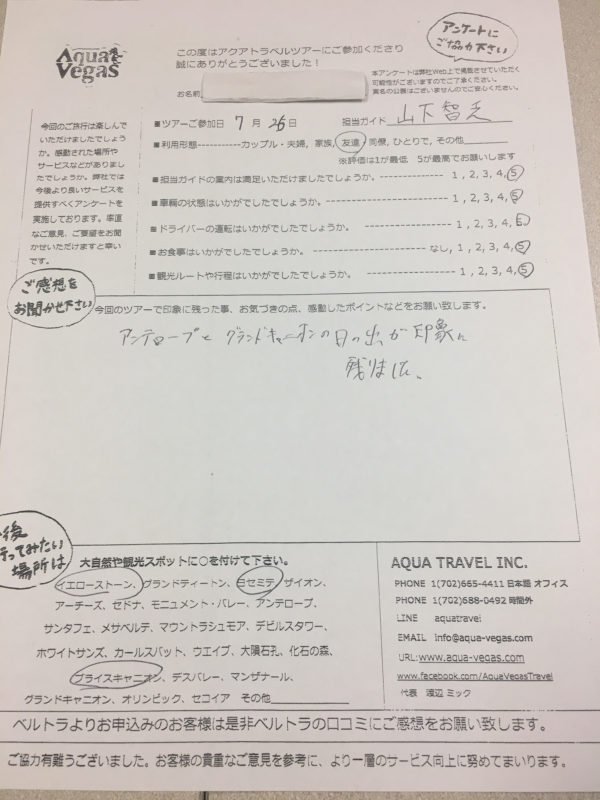 Aqua Vegas
この度はアクアトラベルツアーにご参加くださり
誠にありがとうございました！
アンケートに
ご協力下さい
本アンケートは弊社Web上で掲載させていただく
可能性がございますのでご了承ください。
実名の公表はございませんのでご安心ください。
お名前
今回のご旅行は楽しんで
いただけましたでしょう
か。感動された場所や
サービスなどがありまし
たでしょうか。弊社では
今後より良いサービスを
提供すべくアンケートを
実施しております。率直
なご意見、ご要望をお聞
かせいただけますと幸い
です。
■ツアーご参加日 7 月 25 日 担当ガイド 山下智之
■利用形態-----------カップル・夫婦, 家族, 友達, 同僚, ひとりで, その他
※評価は1が最低 5が最高でお願いします
■担当ガイドの案内は満足いただけましたでしょうか。---------------- 1 , 2, 3, 4, 5
■車輌の状態はいかがでしたでしょうか。---------------- 1 , 2, 3, 4, 5
■ドライバーの運転はいかがでしたでしょうか。---------------- 1 , 2, 3, 4, 5
■お食事はいかがでしたでしょうか。---------------- なし, 1 , 2, 3, 4, 5
■観光ルートや行程はいかがでしたでしょうか。---------------- 1 , 2, 3, 4, 5
ご感想を
お聞かせ下さい
今回のツアーで印象に残った事、お気づきの点、感動したポイントなどをお願い致します。
アンテロープと グランドキャニオンの日の出が印象に
残りました。
後
行ってみたい
場所は
大自然や観光スポットに○を付けて下さい。
イエローストーン、グランドティートン、ヨセミテ、ザイオン、
アーチーズ、セドナ、モニュメント・バレー、アンテロープ、
サンタフェ、メサベルテ、マウントラシュモア、デビルスタワー、
ホワイトサンズ、カールスバット、ウエイブ、大隕石孔、化石の森、
ブライスキャニオン、デスバレー、マンザナール、
グランドキャニオン、オリンピック、セコイア その他
AQUA TRAVEL INC.
PHONE 1(702)665-4411 日本語 オフィス
PHONE 1(702)688-0492 時間外
LINE aquatravel
EMAIL info@aqua-vegas.com
URL:www.aqua-vegas.com
www.facebook.com/AquaVegasTravel
代表 渡辺 ミック
ベルトラよりお申込みのお客様は是非ベルトラの口コミにご感想をお願い致します。
ご協力有難うございました。お客様の貴重なご意見を参考に、より一層のサービス向上に努めてまいります。